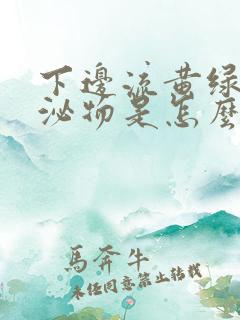 下邊流黄绿
泌物是怎麽
馬奔牛
未经同意禁止转载